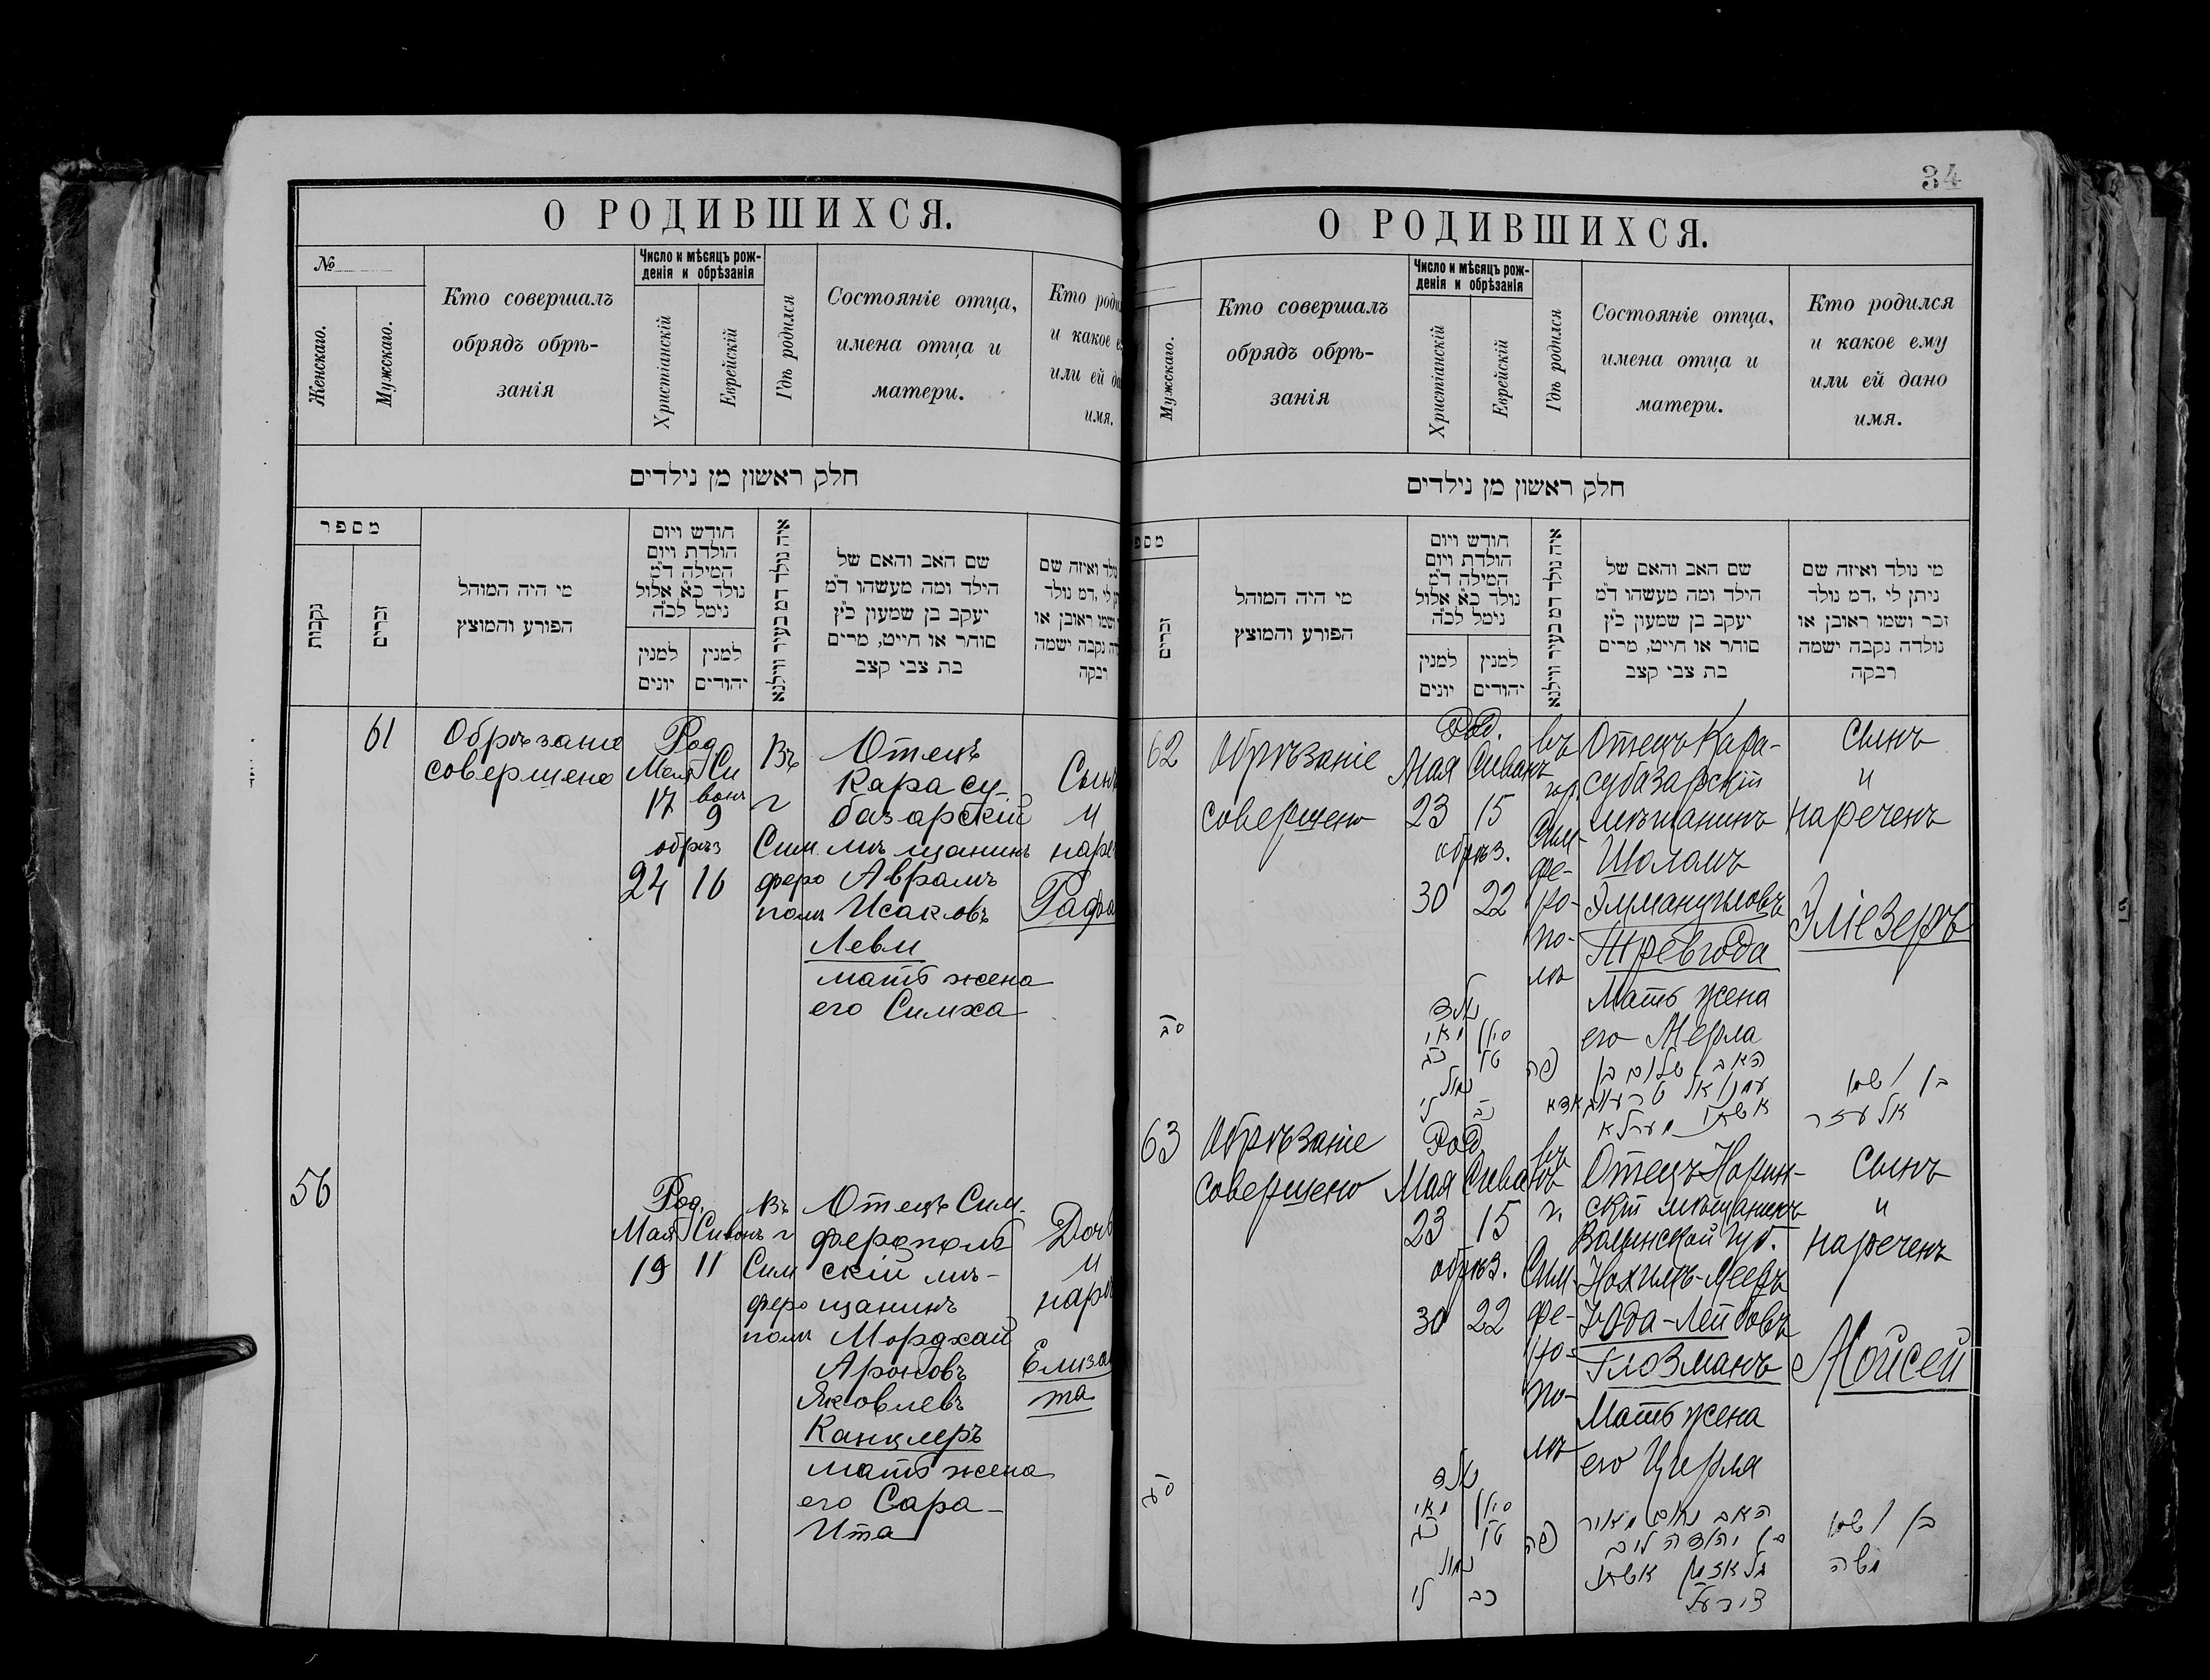 О РОДИВШИХСЯ.
№
Женскаго.
Мужскаго.
Кто совершалъ
обрядъ обрѣ-
занія
Число и мѣсяцъ рож-
денія и обрѣзанія
Христіанскій
Еврейскій
Гдѣ родился
Состояніе отца,
имена отца и
матери.
Кто роди
и какое е
или ей да
имя.
חלק ראשון מן נילדים
מספר
נקבות
זכרים
מי היה המוהל
הפורע והמוצץ
חודש ויום
הולדת ויום
המילה ד״מ
נולד כ״א אלול
נימל לכ״ה
למנין
יונים
למנין
יהודים
איה נולד דמ בעיר ווילנא
שם האב והאם של
הילד ומה מעשהו ד״מ
יעקב בן שמעון כ״ץ
סוחר או חייט, מרים
בת צבי קצב
ולד ואיזה שם
לי ,דמ נולד
ושמו ראובן או
נקבה ישמה
רבקה
61
Обрѣзаніе
совершено
Род.
Мая Си
ванъ
17 9
обрѣз
24 16
Въ
г
Сим
феро
полѣ
Отецъ
Карасу-
базарскій
мѣщанинъ
Аврамъ
Исаковъ
Леви
мать жена
его Симха
Сынъ
и
наре
Рафа
56
Род.
Мая Сиванъ
19 11
Въ
г
Сим
феро
полѣ
Отецъ Сим-
ферополь
скій мѣ-
щанинъ
Мордхай
Ароновъ
Яковлевъ
Канцлеръ
мать жена
его Сара-
Ита
Дочь
и
наре
Елиза
та
34
О РОДИВШИХСЯ.
Мужскаго.
Кто совершалъ
обрядъ обрѣ-
занія
Число и мѣсяцъ рож-
денія и обрѣзанія
Христіанскій
Еврейскій
Гдѣ родился
Состояніе отца,
имена отца и
матери.
Кто родился
и какое ему
или ей дано
имя.
חלק ראשון מן נילדים
מספ
זכרים
מי היה המוהל
הפורע והמוצץ
חודש ויום
הולדת ויום
המילה ד״מ
נולד כ״א אלול
נימל לכ״ה
למנין
יונים
למנין
יהודים
איה נולד דמ בעיר ווילנא
שם האב והאם של
הילד ומה מעשהו ד״מ
יעקב בן שמעון כ״ץ
סוחר או חייט, מרים
בת צבי קצב
מי נולד ואיזה שם
ניתן לי ,דמ נולד
זכר ושמו ראובן או
נולדה נקבה ישמה
רבקה
62
Обрѣзаніе
совершено
Род.
Мая Сиванъ
23 15
обрѣз.
30 22
въ
гор.
Сим-
фе-
ро-
по-
лѣ
Отецъ Кара-
субазарскій
мѣщанинъ
Шоламъ
Эммануиловъ
Тревгода
Мать жена
его Мерла
Сынъ
и
нареченъ
Эліезеръ
סב
נולד
מאי סיון
כג טו
נמול
ל כב
פה
האב שלום בן
עמנואל טרעווגאדא
אשתו מערלא
בן ושמו
אלעזר
63
Обрѣзаніе
совершено
Род.
Мая Сиванъ
23 15
обрѣз.
30 22
въ
г.
Сим-
фе-
ро-
по-
лѣ
Отецъ Норин-
скій мѣщанинъ
Волынской губ.
Нохимъ-Мееръ
Юда-Лейбовъ
Глозманъ
Мать жена
его Цирля
Сынъ
и
нареченъ
Мойсей
סג
נולד
מאי סיון
כג טו
נמול
ל כב
פה
האב נחום מאיר
בן יהודה ליב
גלאזמן אשתו
צירעל
בן ושמו
משה